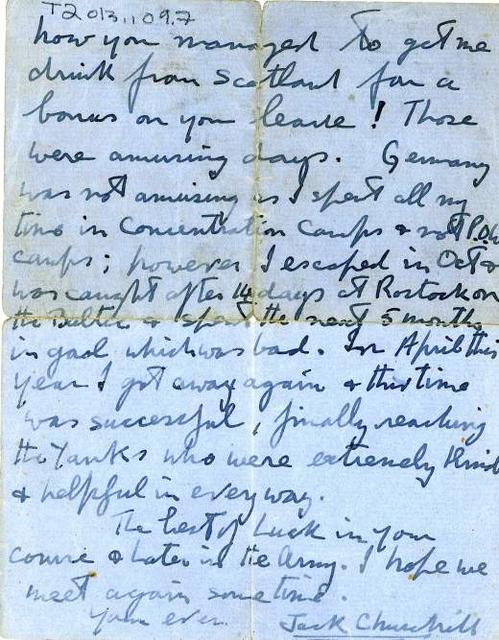 T2013.109.7
how you managed to get me
drink from Scotland for a
bonus on your leave! Those
were amusing days. Germany
was not amusing as I spent all my
time in Concentration Camps & not P.O.W
camps; however I escaped in Oct &
was caught after 14 days at Rostock on
the Baltic & spent the next 5 months
in gaol which was bad. In April this
year I got away again & this time
was successful, finally reaching
the Yanks who were extremely kind
& helpful in every way.
The best of luck in your
course & later in the Army. I hope we
meet again sometime.
Your ever
Jack Churchill